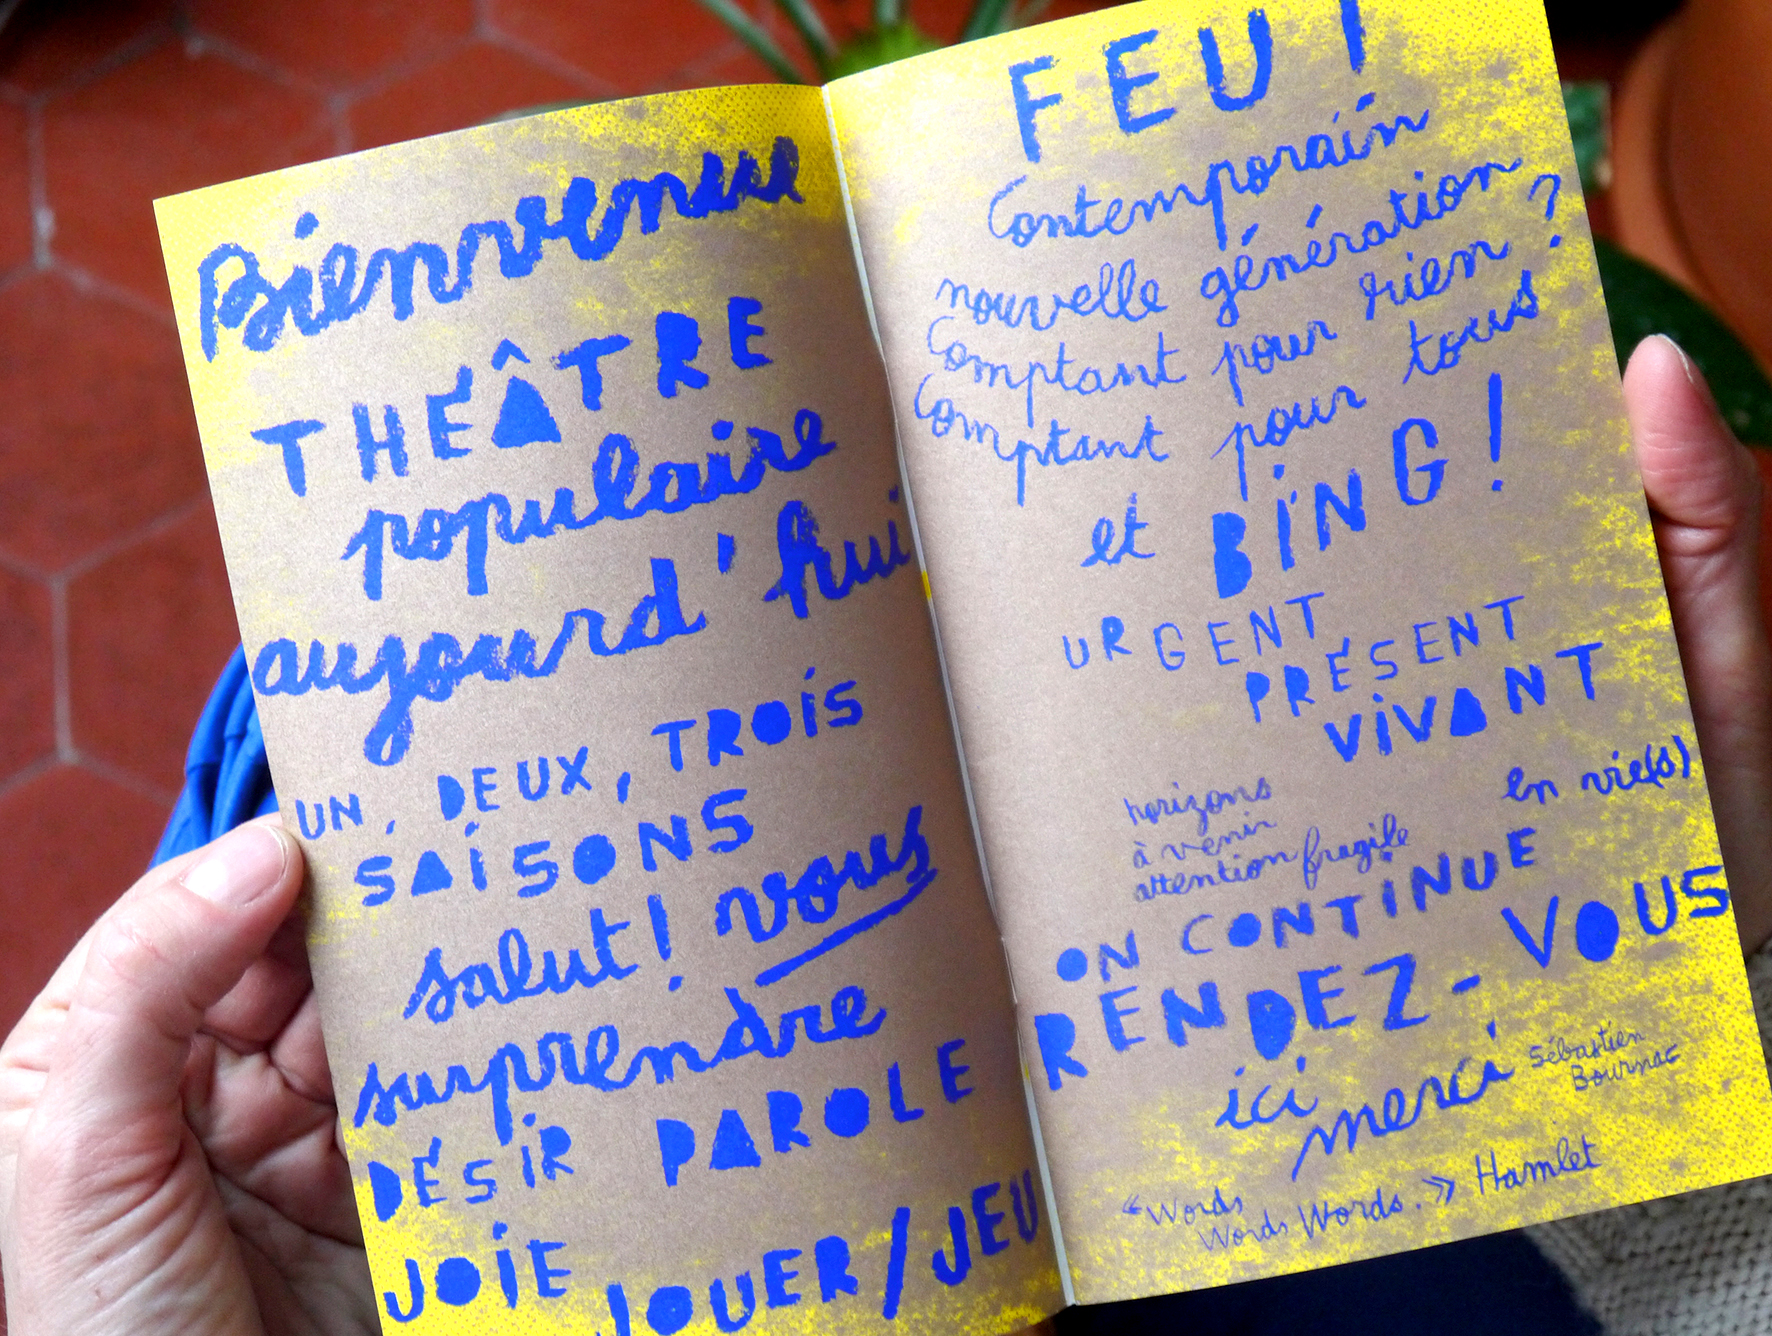 Bienvenue
THÉÂTRE
populaire
aujourd'hui
UN, DEUX, TROIS
SAISONS
salut! vous
surprendre
DÉSIR PAROLE
JOIE JOUER/JEU
FEU!
Contemporain
nouvelle génération
Comptant pour rien?
Comptant pour tous
et BING!
URGENT
PRÉSENT
VIVANT
en vie(s)
horizons
à venir
attention fragile
ON CONTINUE
RENDEZ-VOUS
ici
merci Sébastien
Bournac
"Words
Words Words." Hamlet